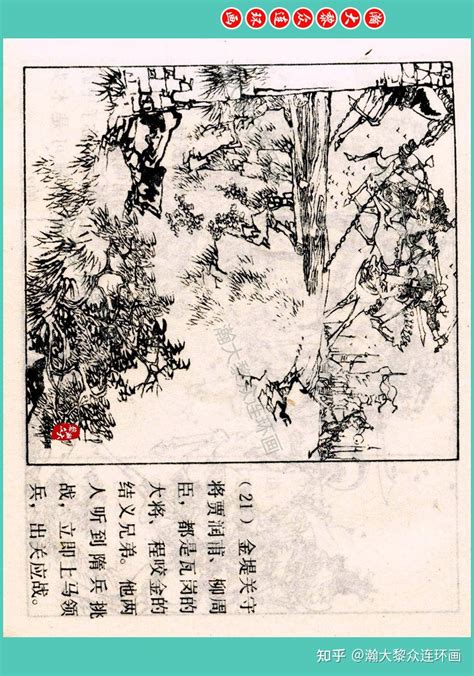 瀚大黎众连环画
瀚大黎众连环画
（21） 金堤关守
将贾润甫、柳周
臣，都是瓦岗的
大将、程咬金的
结义兄弟。他两
人听到隋兵挑
战，立即上马领
兵，出关应战。
知乎 @瀚大黎众连环画